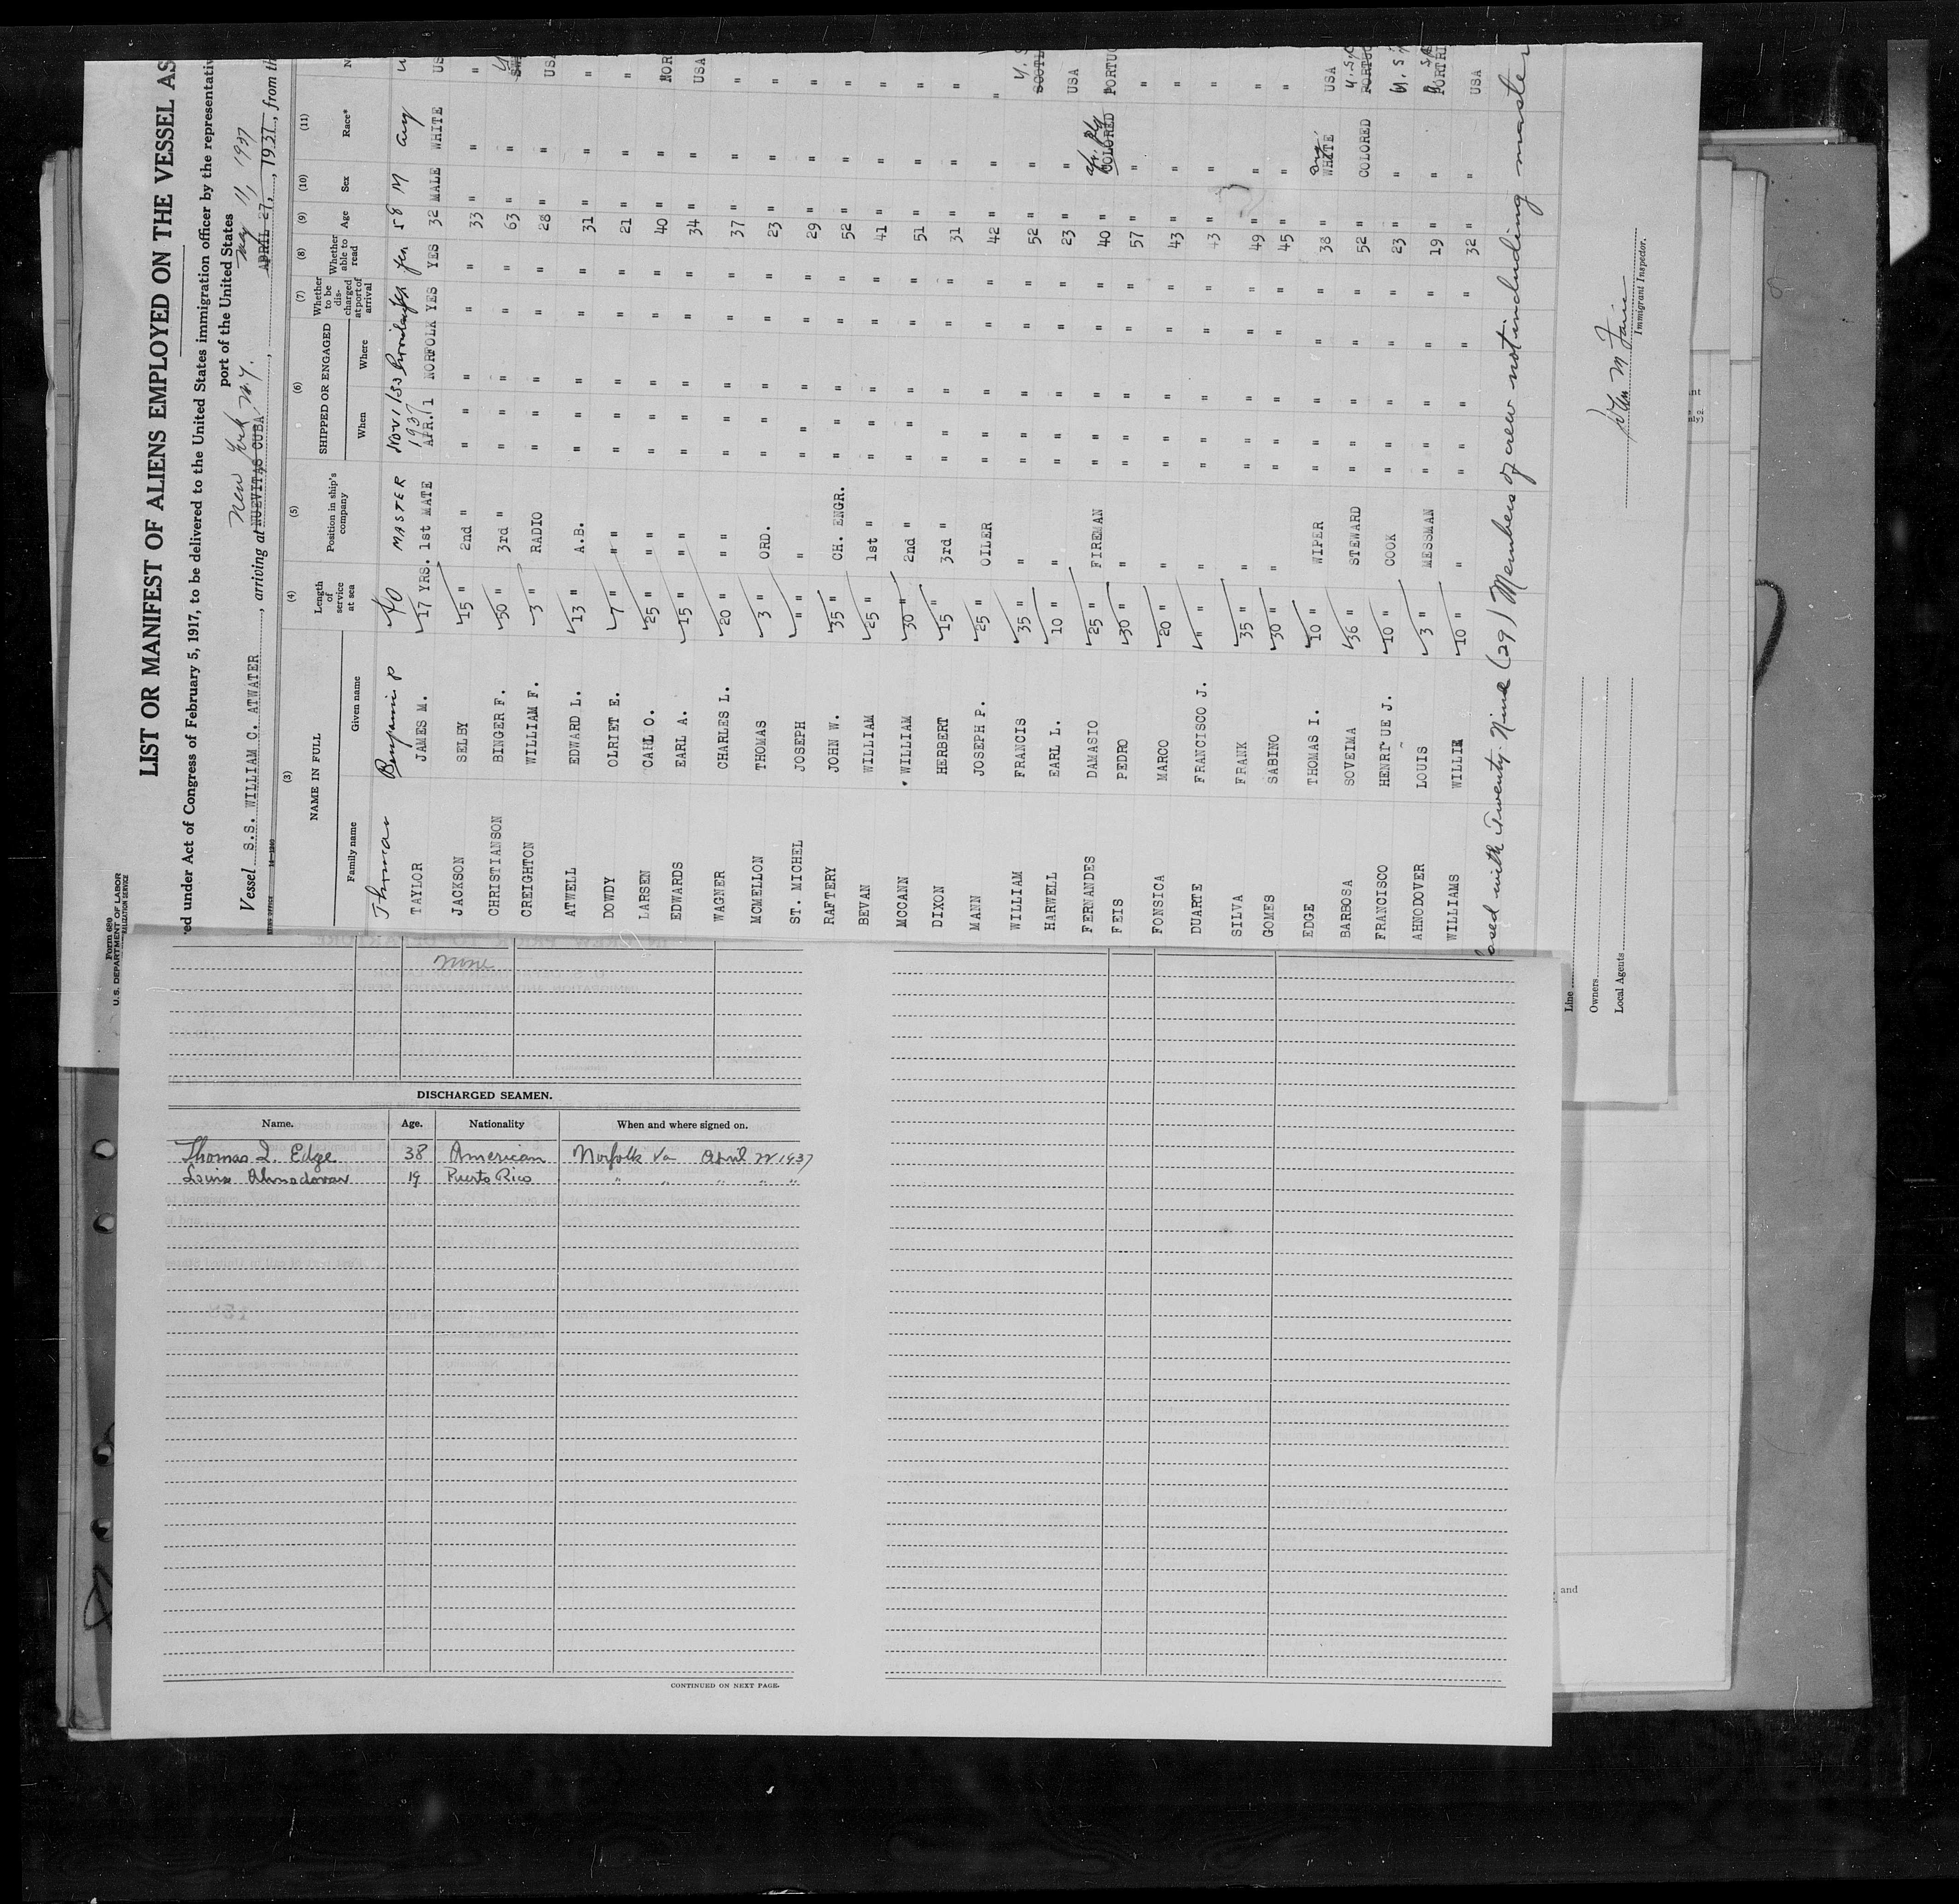 Form 689
U.S. DEPARTMENT OF LABOR
LIST OR MANIFEST OF ALIENS EMPLOYED ON THE VESSEL AS
ed under Act of Congress of February 5, 1917, to be delivered to the United States immigration officer by the representativ
port of the United States
Vessel S.S. WILLIAM C. ATWATER, arriving at NUEVITAS CUBA, APRIL 27, 1937, from th
New York N.Y. May 11, 1937
(3) (4) (5) (6) (7) (8) (9) (10) (11)
NAME IN FULL Length of service at sea Position in ship's company SHIPPED OR ENGAGED Whether to be discharged at port of arrival Whether able to read Age Sex Race*
Family name Given name When Where
Thomas Benjamin P 40 MASTER Nov 1 Yes 58 M
TAYLOR JAMES M. 17 YRS. 1st MATE 1937 APR. 1 NORFOLK YES YES 32 MALE WHITE US
JACKSON SELBY 15 " 2nd " " " " " " 33 " " "
CHRISTIANSON BINGER F. 50 " 3rd " " " " " " 63 " "
CREIGHTON WILLIAM F. 3 " RADIO " " " " " 28 " " USA
ATWELL EDWARD L. 13 " A.B. " " " " " 31 " " "
DOWDY OLRIET E. 7 " " " " " " " " 21 " " "
LARSEN CARL O. 25 " " " " " " " " 40 " " NOR
EDWARDS EARL A. 15 " " " " " " " " 34 " " USA
WAGNER CHARLES L. 20 " " " " " " " " 37 " " "
MCMELLON THOMAS 3 " ORD. " " " " " 23 " " "
ST. MICHEL JOSEPH " " " " " " " " 29 " " "
RAFTERY JOHN W. 35 " CH. ENGR. " " " " " 52 " " "
BEVAN WILLIAM 25 " 1st " " " " " " 41 " " "
MCCANN WILLIAM 30 " 2nd " " " " " " 51 " " "
DIXON HERBERT 15 " 3rd " " " " " " 31 " " "
MANN JOSEPH P. 25 " OILER " " " " " 42 " " "
WILLIAM FRANCIS 35 " " " " " " " 52 " " SCOTL
HARWELL EARL L. 10 " " " " " " " 23 " " USA
FERNANDES DAMASIO 25 " FIREMAN " " " " " 40 " COLORED PORTUG
FEIS PEDRO 30 " " " " " " " 57 " " "
FONSICA MARCO 20 " " " " " " " 43 " " "
DUARTE FRANCISCO J. " " " " " " " " 43 " " "
SILVA FRANK 35 " " " " " " " 49 " " "
GOMES SABINO 30 " " " " " " " 45 " " "
EDGE THOMAS I. 10 " WIPER " " " " " 38 " WHITE USA
BARBOSA SOVEIMA 36 " STEWARD " " " " " 52 " COLORED PORTUG
FRANCISCO HENRI UE J. 10 " COOK " " " " " 23 " "
AHNODOVER LOUIS 3 " MESSMAN " " " " " 19 " " PORTRI
WILLIAMS WILLIE 10 " " " " " " " 32 " " USA
osed with Twenty Nine (29) Members of crew not including master
Immigrant Inspector.
Line
Owners
Local Agents
None
DISCHARGED SEAMEN.
Name. Age. Nationality When and where signed on.
Thomas I. Edge 38 American Norfolk Va April 22 1937
Louis Ahnodover 19 Puerto Rico " " " " "
CONTINUED ON NEXT PAGE.
, and